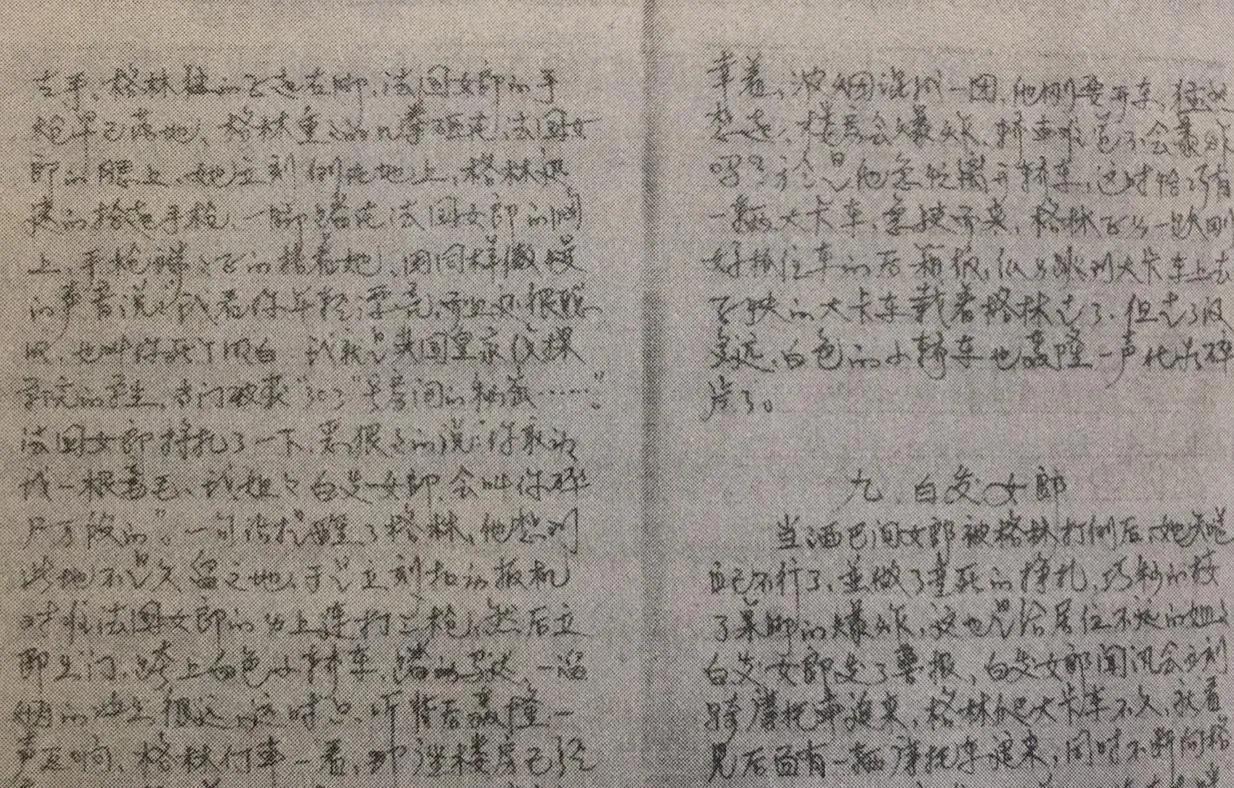 左手、格林猛的飞起右脚,法国女郎的手
枪早已落地、格林重重的几拳砸在法国女
郎的腰上、她立刻倒在地上,格林很
快的拾起手枪、一脚踏在法国女郎的胸
上,手枪 的指着她、用同样傲慢
的声音说:我看你年轻漂亮,而且还很聪
明,也叫你死了明白 我就是英国皇家侦探
学院的学生,专门破获“303”号房间的秘密……”。
法国女郎挣扎了一下 恶狠狠的说:你敢动
我一根毫毛、我姐姐白发女郎,会叫你碎
尸万段的”。一句话提醒了格林,他想到
此地不是久留之地、于是立刻扣动扳机
对准法国女郎的身上连打三枪,然后立
即出门,跨上白色小轿车, 一溜
烟的 这时只听背后轰隆一
声巨响、格林停车一看,那 楼房已经
幸着、浓烟滚成一团,他刚要开车、猛然
想起、楼房会爆炸、轿车难道不会爆炸
吗?于是他急忙离开轿车,这时恰巧有
一辆大卡车,急驶而来,格林飞身一跃刚
好抓住车的后箱板,纵身跳到大卡车上去
飞快的大卡车载着格林走了.但走了没
多远,白色的小轿车也轰隆一声化为碎
片了。
九、白发女郎
当酒巴间女郎被格林打倒后、她知道
自己不行了,並做了垂死的挣扎,巧妙的按
了 脚的爆炸,这也是给居住不远的姐姐
白发女郎发了警报,白发女郎闻讯会立刻
骑摩托车追来,格林 大卡车不久,就看
见后面有一辆摩托车追来,同时不断向格